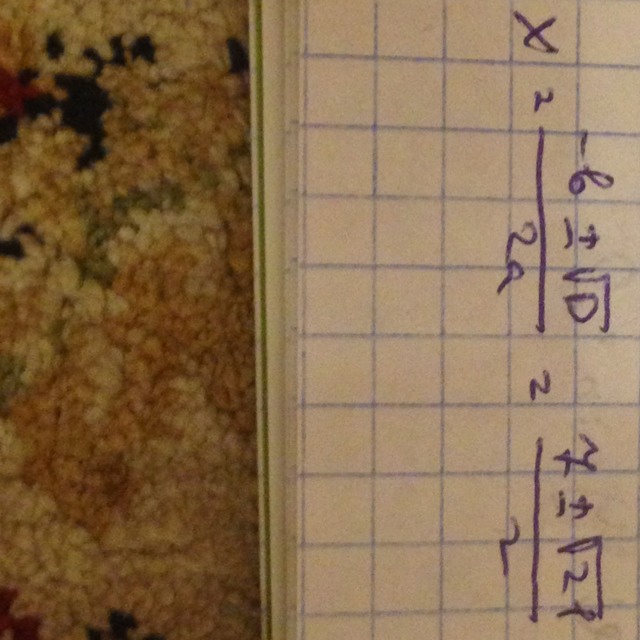 x = \frac{-b ± √D}{2a} = \frac{7 ± √29}{2}